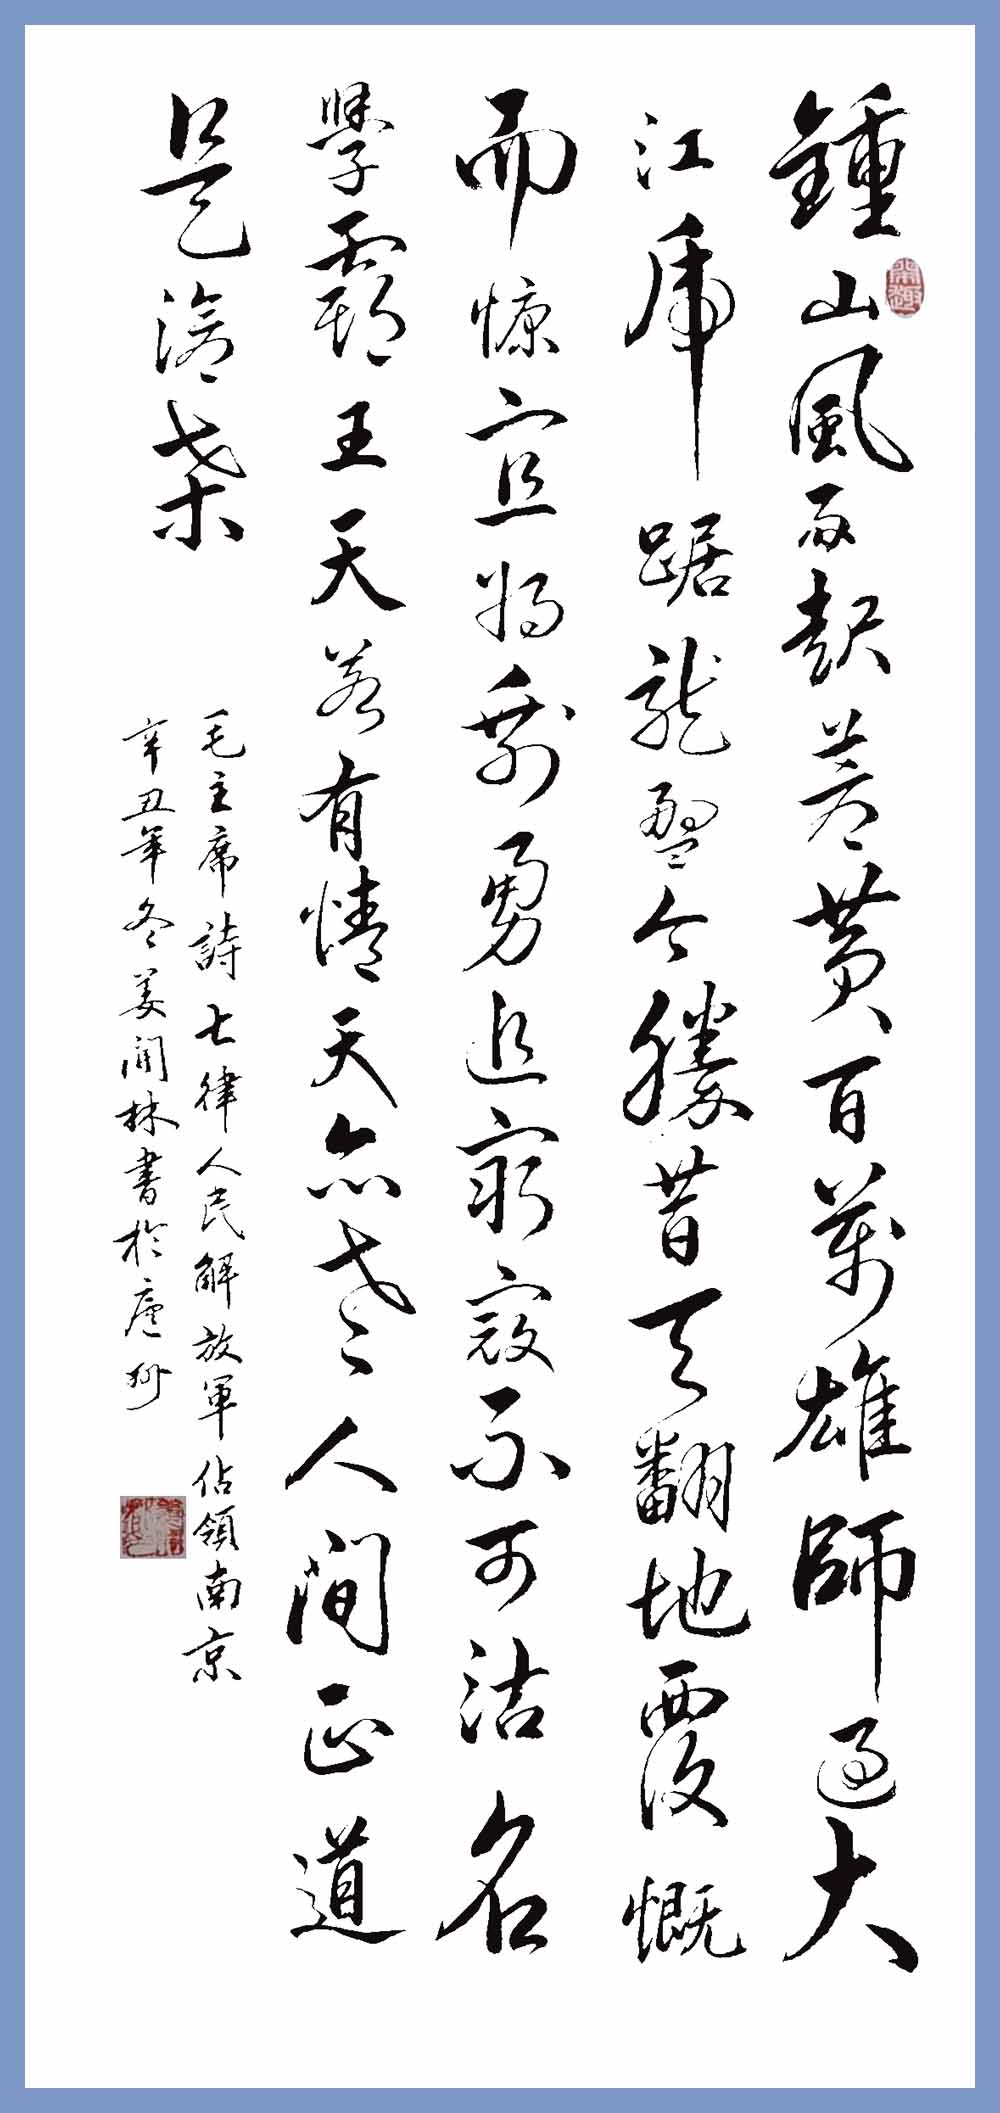 鍾山風雨起蒼黄百萬雄師過大
閑趣
江虎踞龍盤今勝昔天翻地覆慨
而慷宜將剩勇追窮寇不可沽名
學霸王天若有情天亦老人間正道
是滄桑
毛主席詩七律人民解放軍佔領南京
辛丑年冬姜林書於廬州